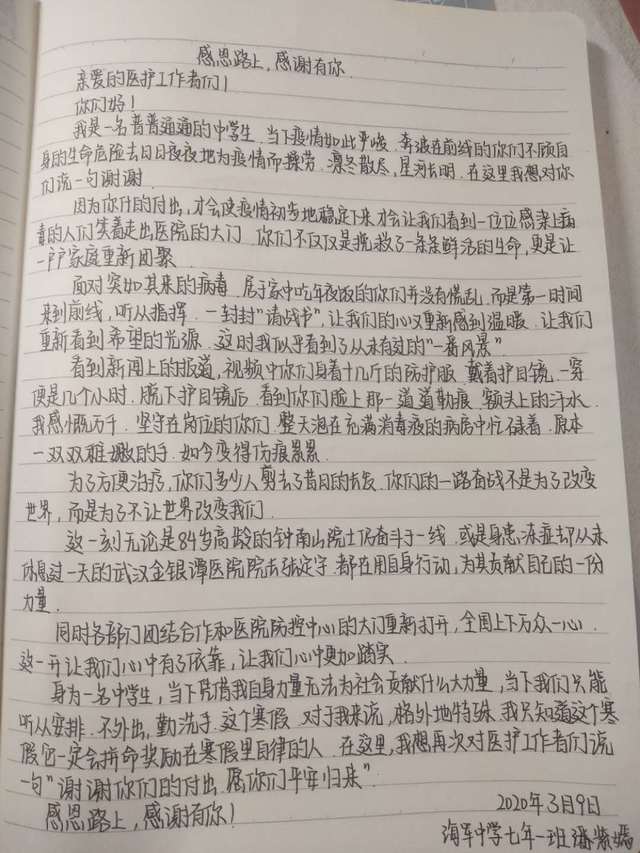 感恩路上,感谢有你
亲爱的医护工作者们!
你们好!
我是一名普普通通的中学生.当下疫情如此严峻.奔波在前线的你们不顾自
身的生命危险去日日夜夜地为疫情而操劳.凛冬散尽,星河长明.在这里我想对你
们说一句谢谢
因为你们的付出,才会使疫情初步地稳定下来才会让我们看到一位位感染上病
毒的人们笑着走出医院的大门.你们不仅仅是挽救了一条条鲜活的生命,更是让
一户户家庭重新团聚.
面对突如其来的病毒.居于家中吃年夜饭的你们并没有慌乱.而是第一时间
来到前线,听从指挥.一封封"请战书",让我们的心又重新感到温暖.让我们
重新看到希望的光源.这时我似乎看到了从未有过的"一番风景"
看到新闻上的报道,视频中你们身着十几斤的防护服.戴着护目镜.一穿
便是几个小时.脱下护目镜后.看到你们脸上那一道道勒痕.额头上的汗水.
我感慨万千.坚守在岗位的你们.整天泡在充满消毒液的病房中忙碌着.原本
一双双稚嫩的手.如今变得伤痕累累.
为了方便治疗,你们多少人剪去了昔日的长发.你们的一路奋战不是为了改变
世界,而是为了不让世界改变我们.
这一刻无论是84岁高龄的钟南山院士仍奋斗于一线.或是身患冻症却从未
休息过一天的武汉金银潭医院院长张定宇.都在用自身行动,为其贡献自己的一份
力量.
同时各部们团结合作和医院防控中心的大门重新打开,全国上下万众一心.
这一开让我们心中有了依靠,让我们心中更加踏实.
身为一名中学生,当下凭借我自身力量无法为社会贡献什么大力量,当下我们只能
听从安排.不外出,勤洗手.这个寒假.对于我来说,格外地特殊.我只知道这个寒
假它一定会拼命奖励在寒假里自律的人.在这里,我想再次对医护工作者们说
一句"谢谢你们的付出.愿你们平安归来"
感恩路上,感谢有你!
2020年3月9日
海军中学七年一班潘紫嫣